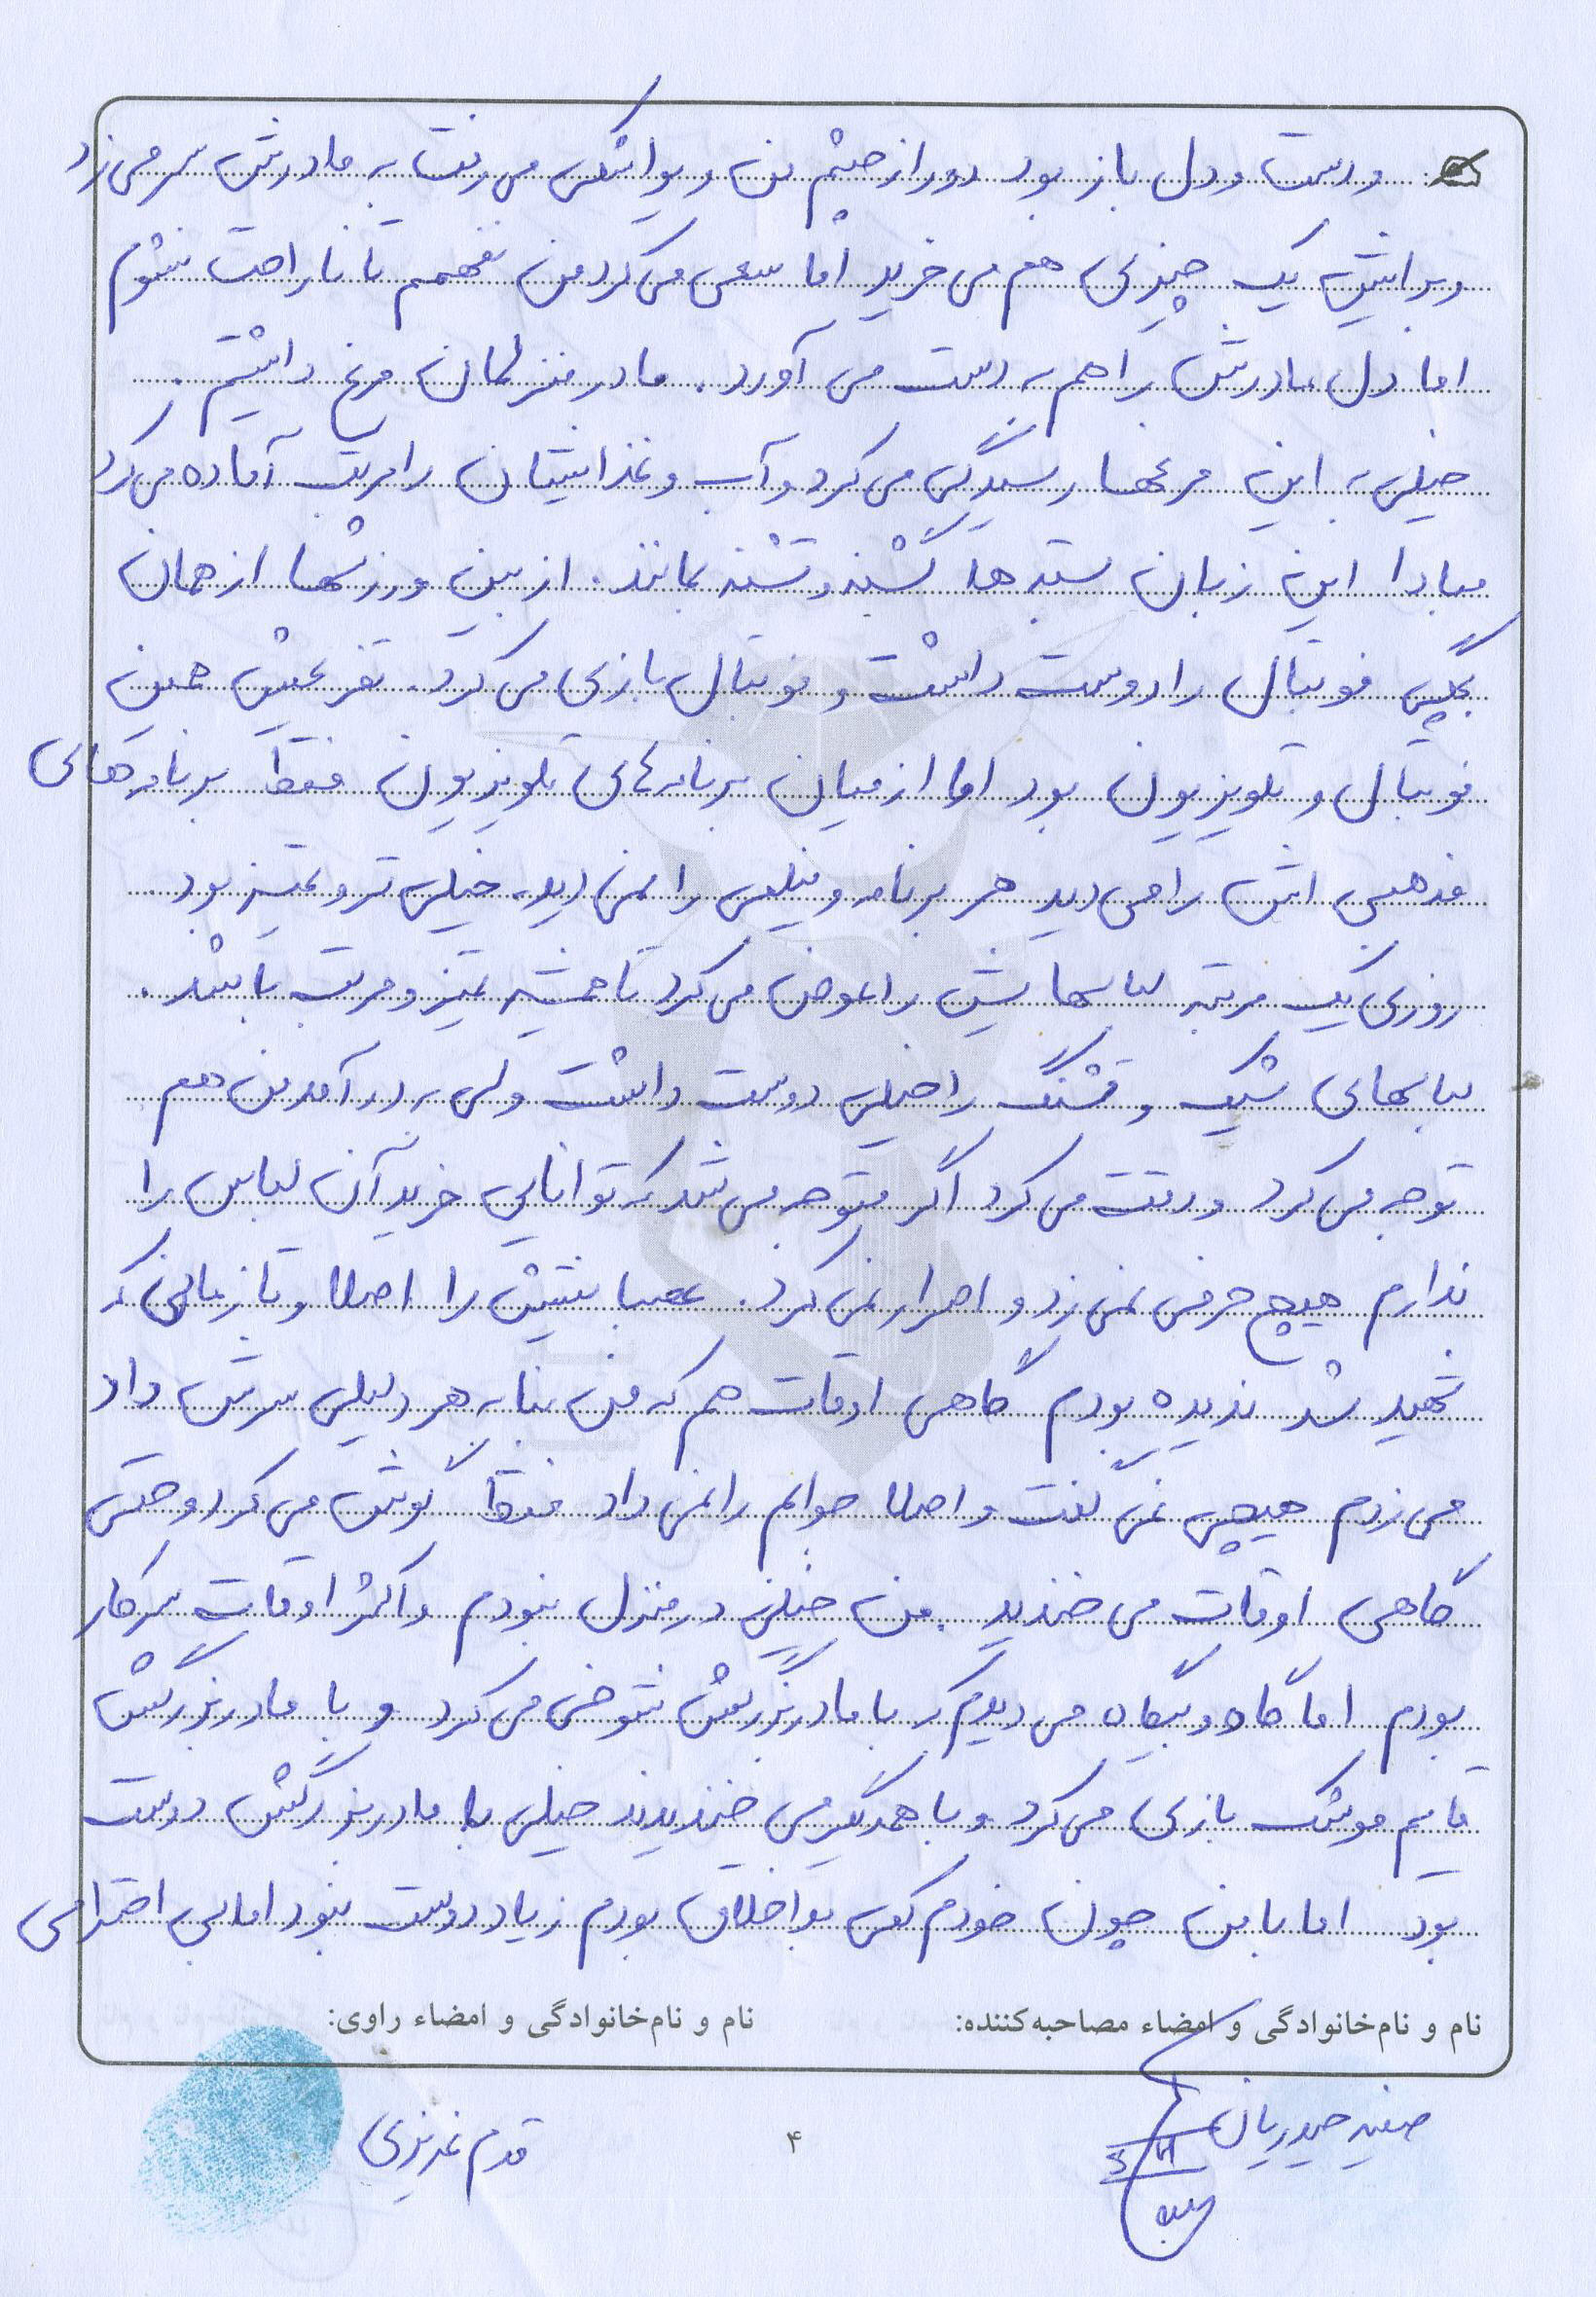 و دست و دل باز بود دور از چشم من و یواشکی می رفت به مادرش سر می زد
و برایش یک چیزی هم می خرید اما سعی می کرد من نفهمم تا ناراحت نشوم
اما دل مادرش را هم به دست می آورد. ما در منزلمان مرغ داشتیم.
خیلی به این مرغها رسیدگی می کرد و آب و غذایشان را مرتب آماده می کرد
مبادا این زبان بسته ها گشنه و تشنه بمانند. از بین ورزشها از همان
بچگی فوتبال را دوست داشت و فوتبال بازی می کرد. تفریحش همین
فوتبال و تلویزیون بود اما از میان برنامه های تلویزیون فقط برنامه های
مذهبی اش را می دید هر برنامه و فیلمی را نمی دید. خیلی تر و تمیز بود
روزی یک مرتبه لباسهایش را عوض می کرد تا همیشه تمیز و مرتب باشد.
لباسهای شیک و قشنگ را خیلی دوست داشت ولی به درآمد من هم
توجه می کرد و دقت می کرد اگر متوجه می شد که توانایی خرید آن لباس را
ندارم هیچ حرفی نمی زد و اصرار نمی کرد. عصبانیتش را اصلا و تا زمانی که
شهید شد ندیده بودم گاهی اوقات هم که من بنا به هر دلیلی سرش داد
می زدم هیچی نمی گفت و اصلا جوابم را نمی داد فقط گوش می کرد و حتی
گاهی اوقات می خندید. من خیلی در منزل نبودم و اکثر اوقات سرکار
بودم اما گاه و بیگاه می دیدم که با مادربزرگش شوخی می کرد و با مادربزرگش
قایم موشک بازی می کرد و با همدیگر می خندیدند خیلی با مادربزرگش دوست
بود اما با من چون خودم کمی بداخلاق بودم زیاد دوست نبود اما بی احترامی
نام و نام‌خانوادگی و امضاء مصاحبه‌کننده:
نام و نام‌خانوادگی و امضاء راوی:
صفیه حیدریان
۴
قدم عزیزی